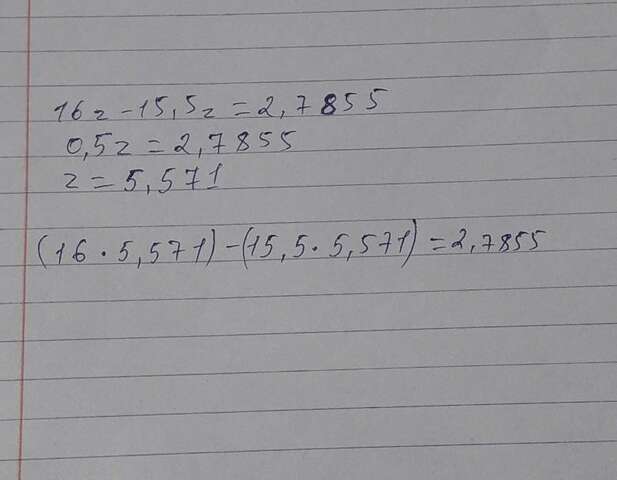 16z-15,5z=2,7855
0,5z=2,7855
z=5,571
(16·5,571)-(15,5·5,571)=2,7855